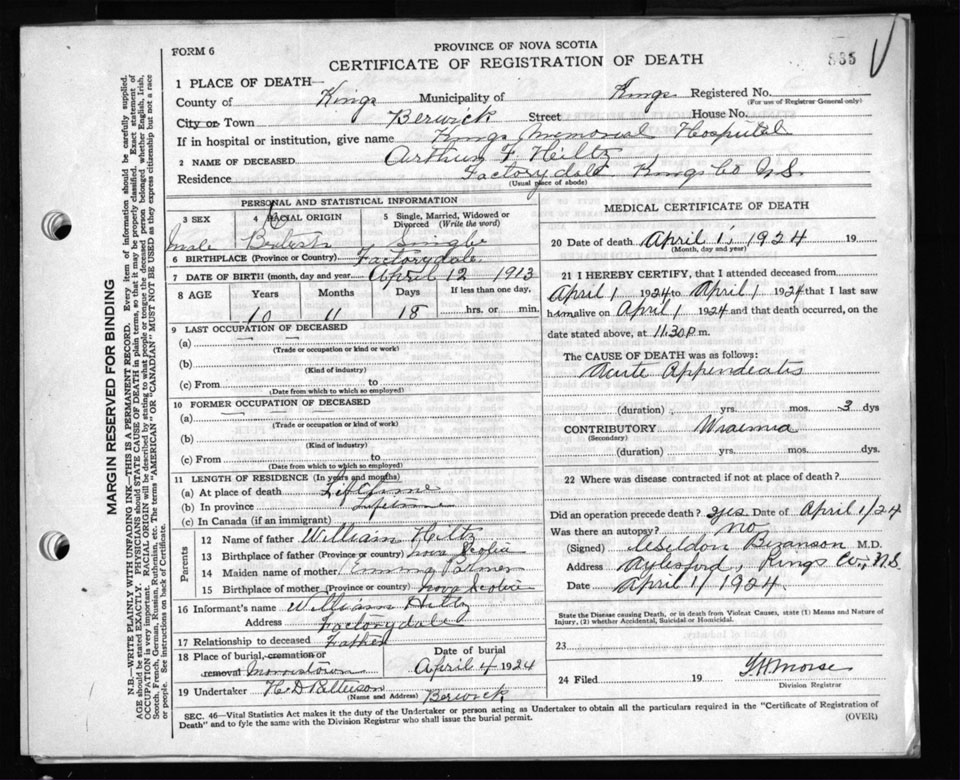 FORM 6
PROVINCE OF NOVA SCOTIA
CERTIFICATE OF REGISTRATION OF DEATH
1 PLACE OF DEATH—
County of Kings Municipality of Kings Registered No.
(For use of Registrar General only)
City or Town Berwick Street House No.
If in hospital or institution, give name Kings Memorial Hospital
2 NAME OF DECEASED Arthur F. Hiltz
Residence Factorydale Kings Co N.S.
(Usual place of abode)
PERSONAL AND STATISTICAL INFORMATION
3 SEX 4 RACIAL ORIGIN 5 Single, Married, Widowed or Divorced (Write the word)
male British Single
6 BIRTHPLACE (Province or Country) Factorydale
7 DATE OF BIRTH (month, day and year) April 12 1913
8 AGE Years Months Days If less than one day,
10 11 18 hrs. or min.
9 LAST OCCUPATION OF DECEASED
(a)
(Trade or occupation or kind or work)
(b)
(Kind of industry)
(c) From to
(Date from which to which so employed)
10 FORMER OCCUPATION OF DECEASED
(a)
(Trade or occupation or kind or work)
(b)
(Kind of industry)
(c) From to
(Date from which to which so employed)
11 LENGTH OF RESIDENCE (In years and months)
(a) At place of death Lifetime
(b) In province Lifetime
(c) In Canada (if an immigrant)
Parents
12 Name of father William Hiltz
13 Birthplace of father (Province or country) Nova Scotia
14 Maiden name of mother Emma Palmer
15 Birthplace of mother (Province or country) Nova Scotia
16 Informant's name William Hiltz
Address Factorydale
17 Relationship to deceased Father
18 Place of burial, cremation or removal Morristown
Date of burial
April 4 1924
19 Undertaker
(Name and Address) Berwick
MEDICAL CERTIFICATE OF DEATH
20 Date of death April 1, 1924 19
(Month, day and year)
21 I HEREBY CERTIFY, that I attended deceased from
April 1 1924 to April 1 1924 that I last saw
him alive on April 1 1924 and that death occurred, on
date stated above, at 11.30 p.m.
The CAUSE OF DEATH was as follows:
Acute Appendicitis
(duration) yrs. mos. 3 dys
CONTRIBUTORY Uraemia
(Secondary)
(duration) yrs. mos. dys.
22 Where was disease contracted if not at place of death?
Did an operation precede death? yes Date of April 1/24
Was there an autopsy? no
(Signed) Bezanson M.D.
Address Aylesford, Kings Co., N.S.
Date April 1/1924
State the Disease causing Death, or in death from Violent Causes, state (1) Means and Nature of
Injury, (2) whether Accidental, Suicidal or Homicidal.
23
24 Filed 19 Morse
Division Registrar
SEC. 46—Vital Statistics Act makes it the duty of the Undertaker or person acting as Undertaker to obtain all the particulars required in the "Certificate of Registration of
Death" and to fyle the same with the Division Registrar who shall issue the burial permit.
(OVER)
MARGIN RESERVED FOR BINDING
N.B.—WRITE PLAINLY WITH UNFADING INK—THIS IS A PERMANENT RECORD. Every item of information should be carefully supplied.
AGE should be stated EXACTLY. PHYSICIANS should STATE CAUSE OF DEATH in plain terms, so that it may be properly classified. Exact statement of
OCCUPATION is very important. RACIAL ORIGIN will be described by stating to what people or tongue the deceased person belonged whether English, Irish,
Scotch, French, German, Russian, Ruthenian, etc. The terms "AMERICAN" OR "CANADIAN" MUST NOT BE USED as they express citizenship but not a race
or people. See instructions on back of Certificate.